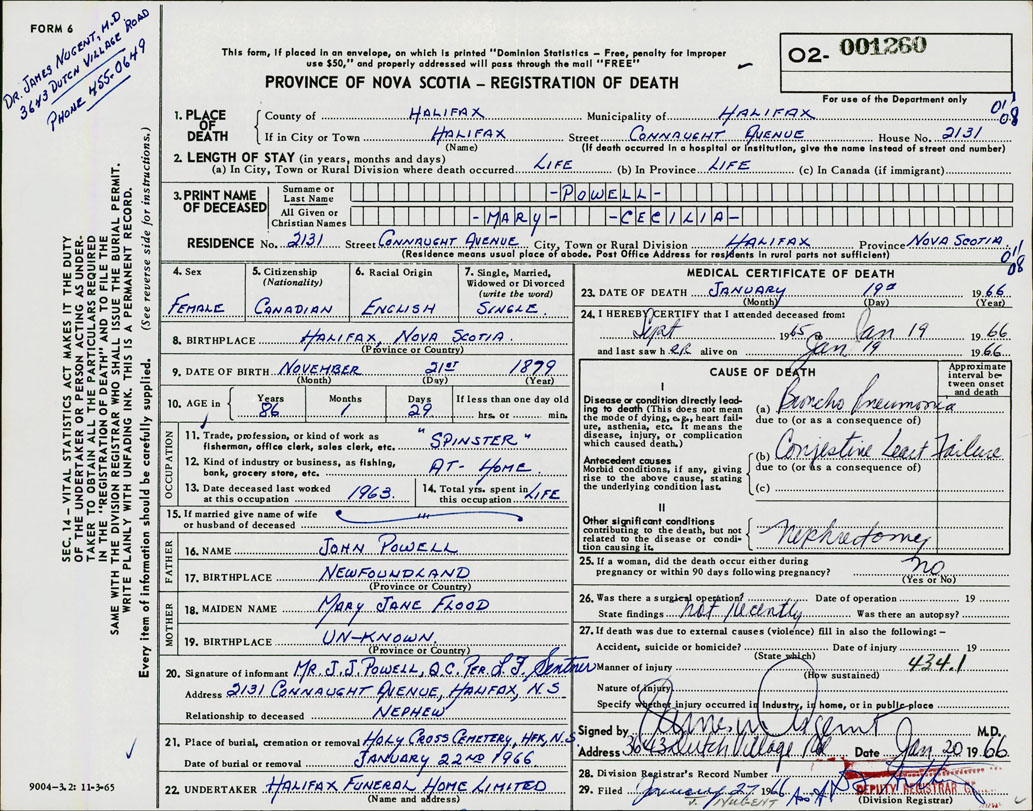 FORM 6
DR. JAMES NUGENT, M.D.
3643 DUTCH VILLAGE ROAD
PHONE 455-0649
This form, if placed in an envelope, on which is printed "Dominion Statistics – Free, penalty for improper
use $50," and properly addressed will pass through the mail "FREE"
PROVINCE OF NOVA SCOTIA – REGISTRATION OF DEATH
02- 001260
For use of the Department only
SEC. 14 – VITAL STATISTICS ACT MAKES IT THE DUTY
OF THE UNDERTAKER OR PERSON ACTING AS UNDER-
TAKER TO OBTAIN ALL THE PARTICULARS REQUIRED
IN THE "REGISTRATION OF DEATH" AND TO FILE THE
SAME WITH THE DIVISION REGISTRAR WHO SHALL ISSUE THE BURIAL PERMIT.
WRITE PLAINLY WITH UNFADING INK. THIS IS A PERMANENT RECORD.
Every item of information should be carefully supplied. (See reverse side for instructions.)
1. PLACE OF DEATH
County of HALIFAX Municipality of HALIFAX 01/08
If in City or Town HALIFAX Street CONNAUGHT AVENUE House No. 2131
(Name) (If death occurred in a hospital or institution, give the name instead of street and number)
2. LENGTH OF STAY (in years, months and days)
(a) In City, Town or Rural Division where death occurred LIFE (b) In Province LIFE (c) In Canada (if immigrant)
3. PRINT NAME OF DECEASED
Surname or Last Name -POWELL-
All Given or Christian Names -MARY- -CECILIA-
RESIDENCE No. 2131 Street CONNAUGHT AVENUE City, Town or Rural Division HALIFAX Province NOVA SCOTIA
(Residence means usual place of abode. Post Office Address for residents in rural parts not sufficient) 01/08
4. Sex FEMALE
5. Citizenship (Nationality) CANADIAN
6. Racial Origin ENGLISH
7. Single, Married, Widowed or Divorced (write the word) SINGLE
8. BIRTHPLACE HALIFAX, NOVA SCOTIA
(Province or Country)
9. DATE OF BIRTH NOVEMBER 21ST 1879
(Month) (Day) (Year)
10. AGE in Years 86 Months 1 Days 29 If less than one day old hrs. or min.
OCCUPATION
11. Trade, profession, or kind of work as fisherman, office clerk, sales clerk, etc. "SPINSTER"
12. Kind of industry or business, as fishing, bank, grocery store, etc. AT-HOME
13. Date deceased last worked at this occupation 1963.
14. Total yrs. spent in this occupation LIFE
15. If married give name of wife or husband of deceased
FATHER
16. NAME JOHN POWELL
17. BIRTHPLACE NEWFOUNDLAND
(Province or Country)
MOTHER
18. MAIDEN NAME MARY JANE FLOOD
19. BIRTHPLACE UN-KNOWN.
(Province or Country)
20. Signature of informant MR. J.J. POWELL, Q.C. PER
Address 2131 CONNAUGHT AVENUE, HALIFAX, N.S
Relationship to deceased NEPHEW
21. Place of burial, cremation or removal HOLY CROSS CEMETERY, HFX, N.S
Date of burial or removal JANUARY 22ND 1966
22. UNDERTAKER HALIFAX FUNERAL HOME LIMITED
(Name and address)
9004-3.2: 11-3-65
MEDICAL CERTIFICATE OF DEATH
23. DATE OF DEATH JANUARY 19 1966
(Month) (Day) (Year)
24. I HEREBY CERTIFY that I attended deceased from:
Sept 1965 Jan 19 1966
and last saw her alive on Jan 19 1966
CAUSE OF DEATH
Approximate interval between onset and death
I
Disease or condition directly leading to death (This does not mean the mode of dying, e.g., heart failure, asthenia, etc. It means the disease, injury, or complication which caused death.)
(a) Broncho Pneumonia
due to (or as a consequence of)
Antecedent causes
Morbid conditions, if any, giving rise to the above cause, stating the underlying condition last.
(b) Conjestive Heart Failure
due to (or as a consequence of)
(c)
II
Other significant conditions
contributing to the death, but not related to the disease or condition causing it.
Nephrectomy
25. If a woman, did the death occur either during pregnancy or within 90 days following pregnancy? no
(Yes or No)
26. Was there a surgical operation? Date of operation 19
State findings not recently Was there an autopsy?
27. If death was due to external causes (violence) fill in also the following: –
Accident, suicide or homicide? Date of injury 19
(State which) 434.1
Manner of injury
(How sustained)
Nature of Injury
Specify whether injury occurred in industry, in home, or in public place
Signed by James Nugent M.D.
Address 3643 Dutch Village Rd Date Jan 20 1966
28. Division Registrar's Record Number
29. Filed January 27 1966
J. NUGENT
DEPUTY REGISTRAR
(Division Registrar)